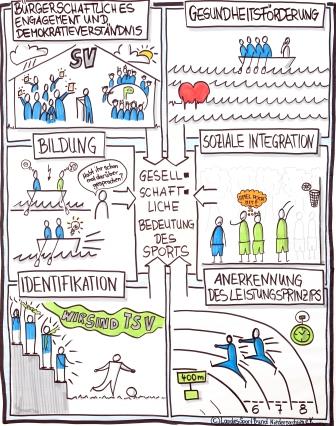 BÜRGERSCHAFTLICHES
ENGAGEMENT UND
DEMOKRATIEVERSTÄNDNIS
SV
GESUNDHEITSFÖRDERUNG
BILDUNG
Habt ihr schon
mal darüber
gesprochen?
GESELL-
SCHAFT-
LICHE
BEDEUTUNG
DES
SPORTS
SOZIALE INTEGRATION
IDENTIFIKATION
WIR SIND TSV
ANERKENNUNG
DES LEISTUNGSPRINZIPS
400m
6 7 8
© LandesSportBund Niedersachsen e.V.